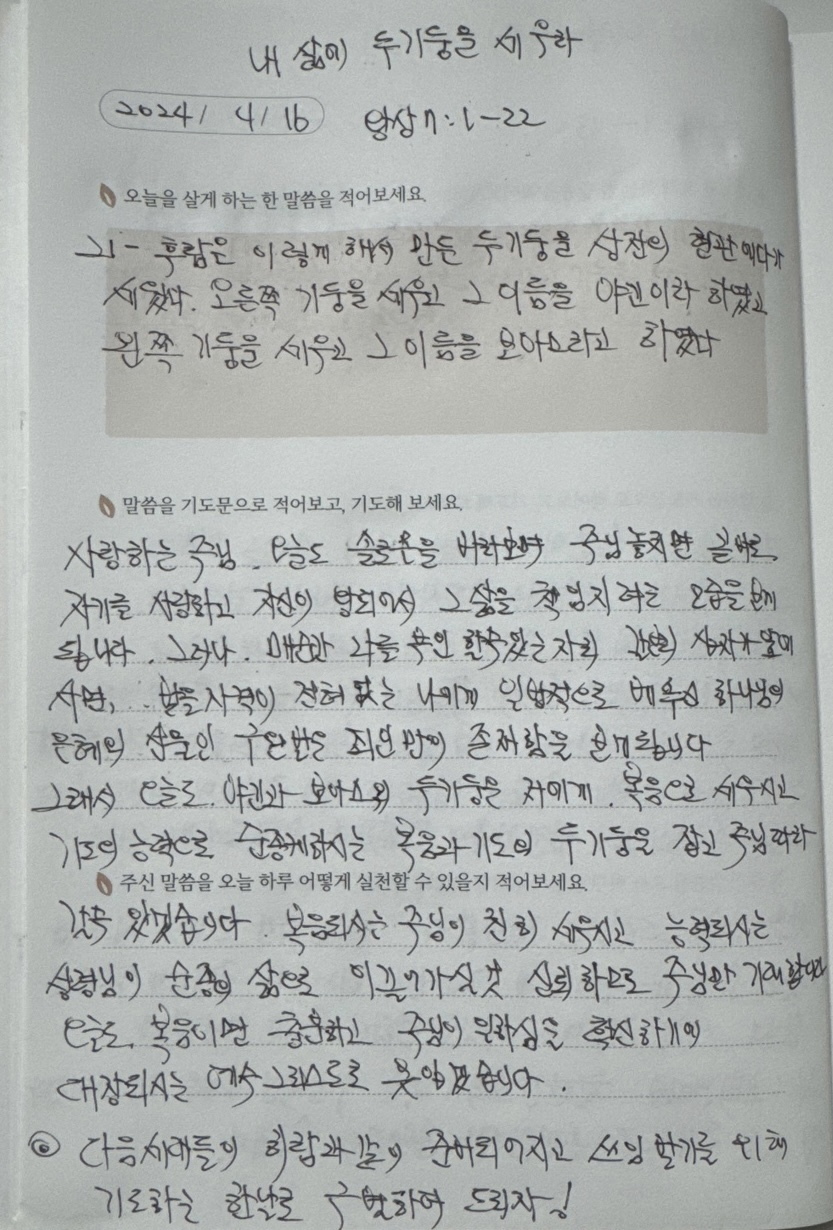 내 삶에 두기둥을 세우라
2024/ 4/ 16 왕상 7:1-22
오늘을 살게 하는 한 말씀을 적어보세요.
21- 후람은 이렇게 해서 만든 두기둥을 성전의 현관에다가
세웠다. 오른쪽 기둥을 세우고 그 이름을 야긴이라 하였고
왼쪽 기둥을 세우고 그 이름을 보아스라고 하였다
말씀을 기도문으로 적어보고, 기도해 보세요.
사랑하는 주님. 오늘도 솔로몬을 바라보며 주님 놓치면 곧바로
자기를 사랑하고 자신이 왕되어서 그 삶을 책임지려는 모습을 보게
됩니다. 그러나. 매순간 나를 부인 할수있는 자리 십자가 앞에
서면, 받을 자격이 전혀 없는 나에게 일방적으로 베푸신 하나님의
은혜의 산물인 구원받은 죄인만이 존재함을 보게됩니다
그래서 오늘도. 야긴과 보아스의 두기둥을 저에게. 복음으로 세우시고
기도의 능력으로 순종케하시는 복음과 기도의 두기둥을 잡고 주님 따라
주신 말씀을 오늘 하루 어떻게 실천할 수 있을지 적어보세요.
있겠습니다. 복음되시는 주님이 친히 세우시고 능력되시는
성령님이 순종의 삶으로 이끌어가실 것 신뢰하므로 주님만 기대합니다
오늘도. 복음이면 충분하고 주님이 일하심을 확신하기에
대장되시는 예수그리스도로 옷입겠습니다.
◎ 다음세대들이 히람과 같이 준비되어지고 쓰임 받기를 위해
기도하는 한날로 구별하여 드리자!